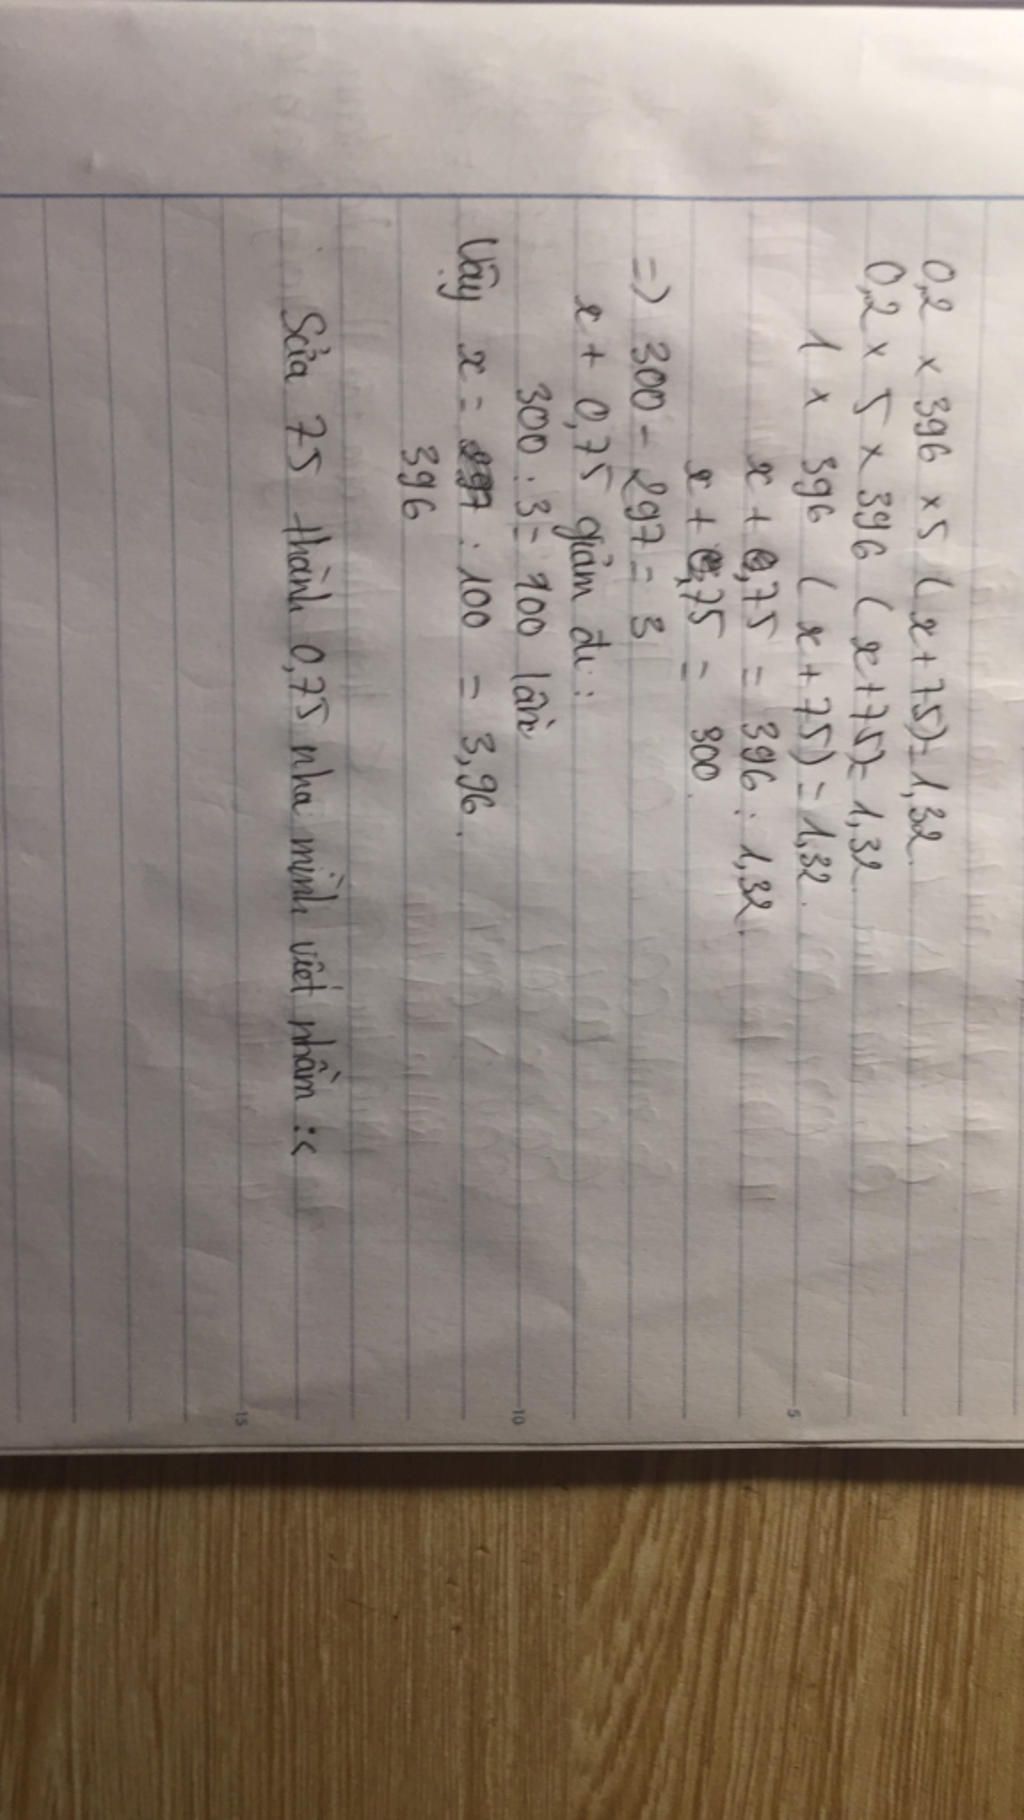 0,2 x 396 x 5 ( x + 75) = 1,32.
0,2 x 5 x 396 ( x + 75) = 1,32.
1 x 396 ( x + 75) = 1,32.
x + 0,75 = 396 : 1,32.
x + 0,75 = 300.
=> 300 - 297 = 3
x + 0,75 giảm đi :
300 : 3 = 100 lần
Vậy x = : 100 = 3,96.
396
Sửa 75 thành 0,75 nha mình viết nhầm :<
5
10
15